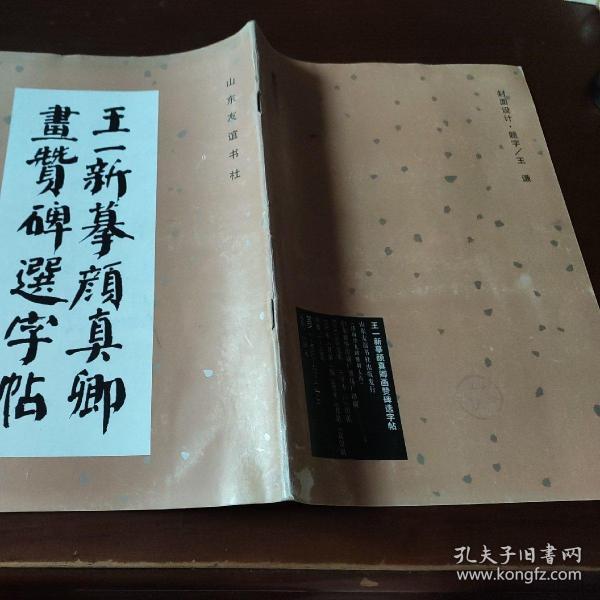 王一新摹颜真卿
畫贊碑選字帖
山东友谊书社
封面设计·题字/王 谦
王一新摹颜真卿画赞碑选字帖
山东友谊书社出版发行
孔夫子旧书网
www.kongfz.com